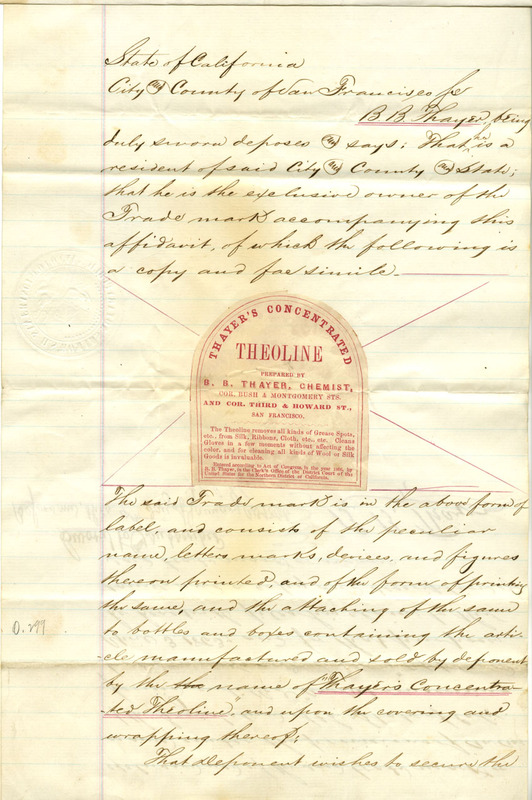 State of California
City and County of San Francisco ss
B B Thayer, being
duly sworn deposes and says: That he is a
resident of said City and County and State;
that he is the exclusive owner of the
Trade mark accompanying this
affidavit, of which the following is
a copy and fac simile.
THAYER'S CONCENTRATED
THEOLINE
PREPARED BY
B. B. THAYER, CHEMIST,
COR. BUSH & MONTGOMERY STS.
AND COR. THIRD & HOWARD ST.,
SAN FRANCISCO.
The Theoline removes all kinds of Grease Spots,
etc., from Silk, Ribbons, Cloth, etc., etc. Cleans
Gloves in a few moments without affecting the
color, and for cleaning all kinds of Wool or Silk
Goods is invaluable.
Entered according to Act of Congress, in the year by
B. B. Thayer, in the Clerk's Office of the District Court of the
United States for the Northern District of California.
The said Trade mark is in the above form of
label, and consists of the peculiar
name, letters marks, devices, and figures
thereon printed, and of the form of printing
the same, and the attaching of the same
to bottles and boxes containing the arti-
cle manufactured and sold by deponent
by the the name of "Thayer's Concentra-
-ted Theoline, and upon the covering and
wrapping thereof;
That deponent wishes to secure the
O.299